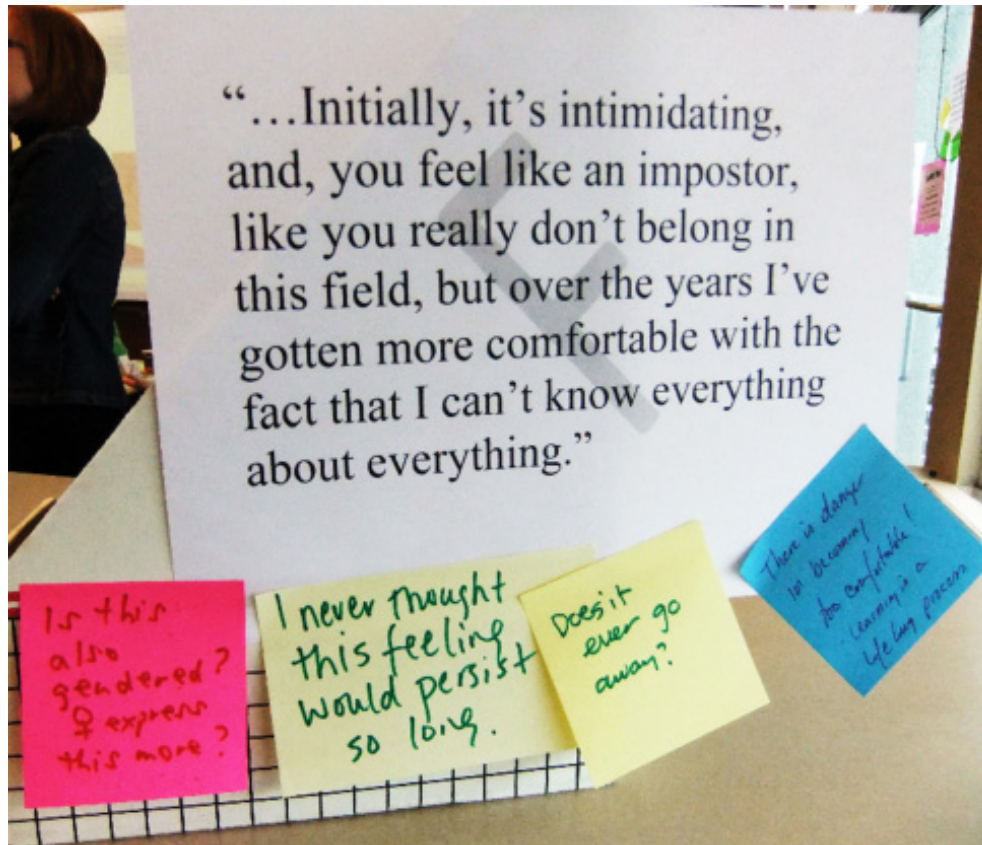 “…Initially, it’s intimidating,
and, you feel like an impostor,
like you really don’t belong in
this field, but over the years I’ve
gotten more comfortable with the
fact that I can’t know everything
about everything.”
F
Is this
also
gendered?
♀ express
this more?
I never thought
this feeling
would persist
so long.
Does it
ever go
away?
There is danger
in becoming
too comfortable!
Learning is a
life long process